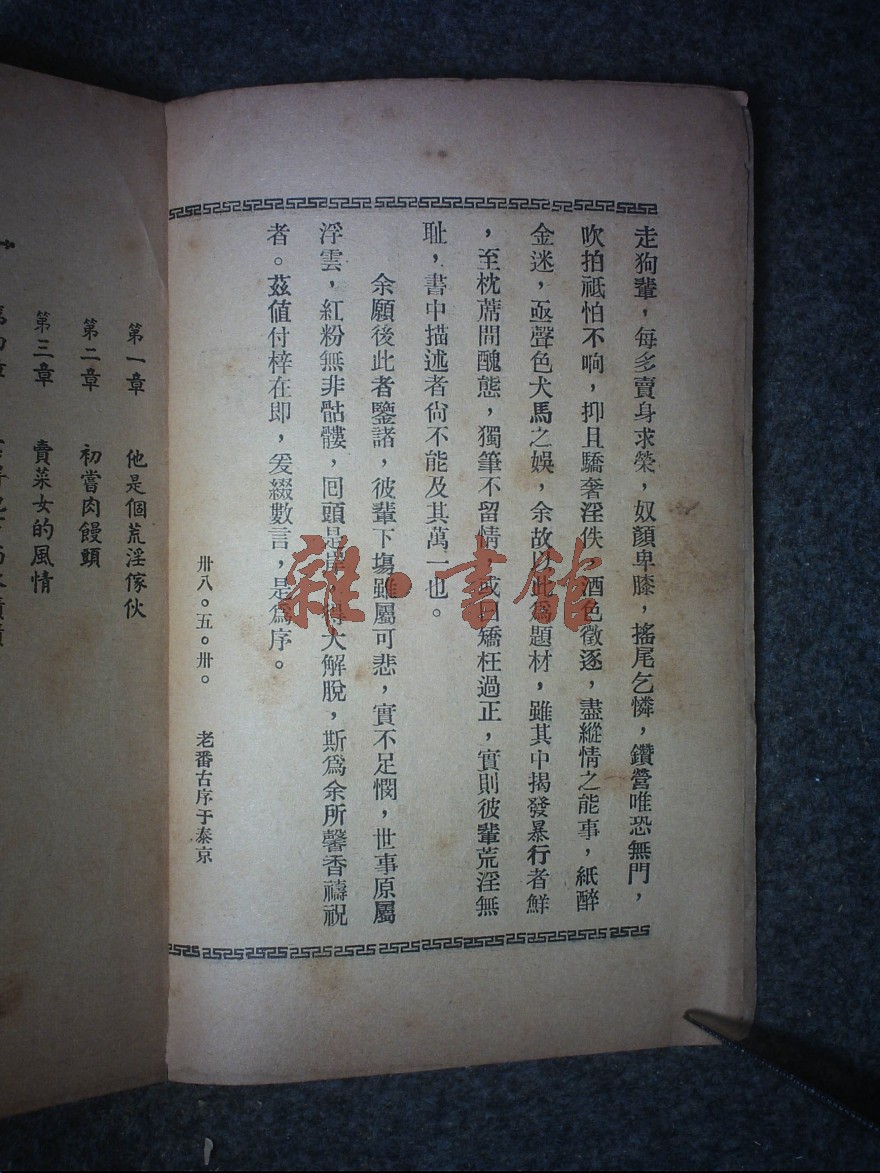 走狗輩，每多賣身求榮，奴顏卑膝，搖尾乞憐，鑽營唯恐無門，
吹拍祗怕不响，抑且驕奢淫佚，酒色徵逐，盡縱情之能事，紙醉
金迷，亟聲色犬馬之娛，余故以此為題材，雖其中揭發暴行者鮮
，至枕蓆間醜態，獨筆不留情，或曰矯枉過正，實則彼輩荒淫無
耻，書中描述者尙不能及其萬一也。
余願後此者鑒諸，彼輩下塲雖屬可悲，實不足憫，世事原屬
浮雲，紅粉無非骷髏，回頭是岸，得大解脫，斯為余所馨香禱祝
者。茲值付梓在即，爰綴數言，是為序。
卅八。五。卅。　老番古序于泰京
雜·書館
第一章　他是個荒淫傢伙
第二章　初嘗肉饅頭
第三章　賣菜女的風情